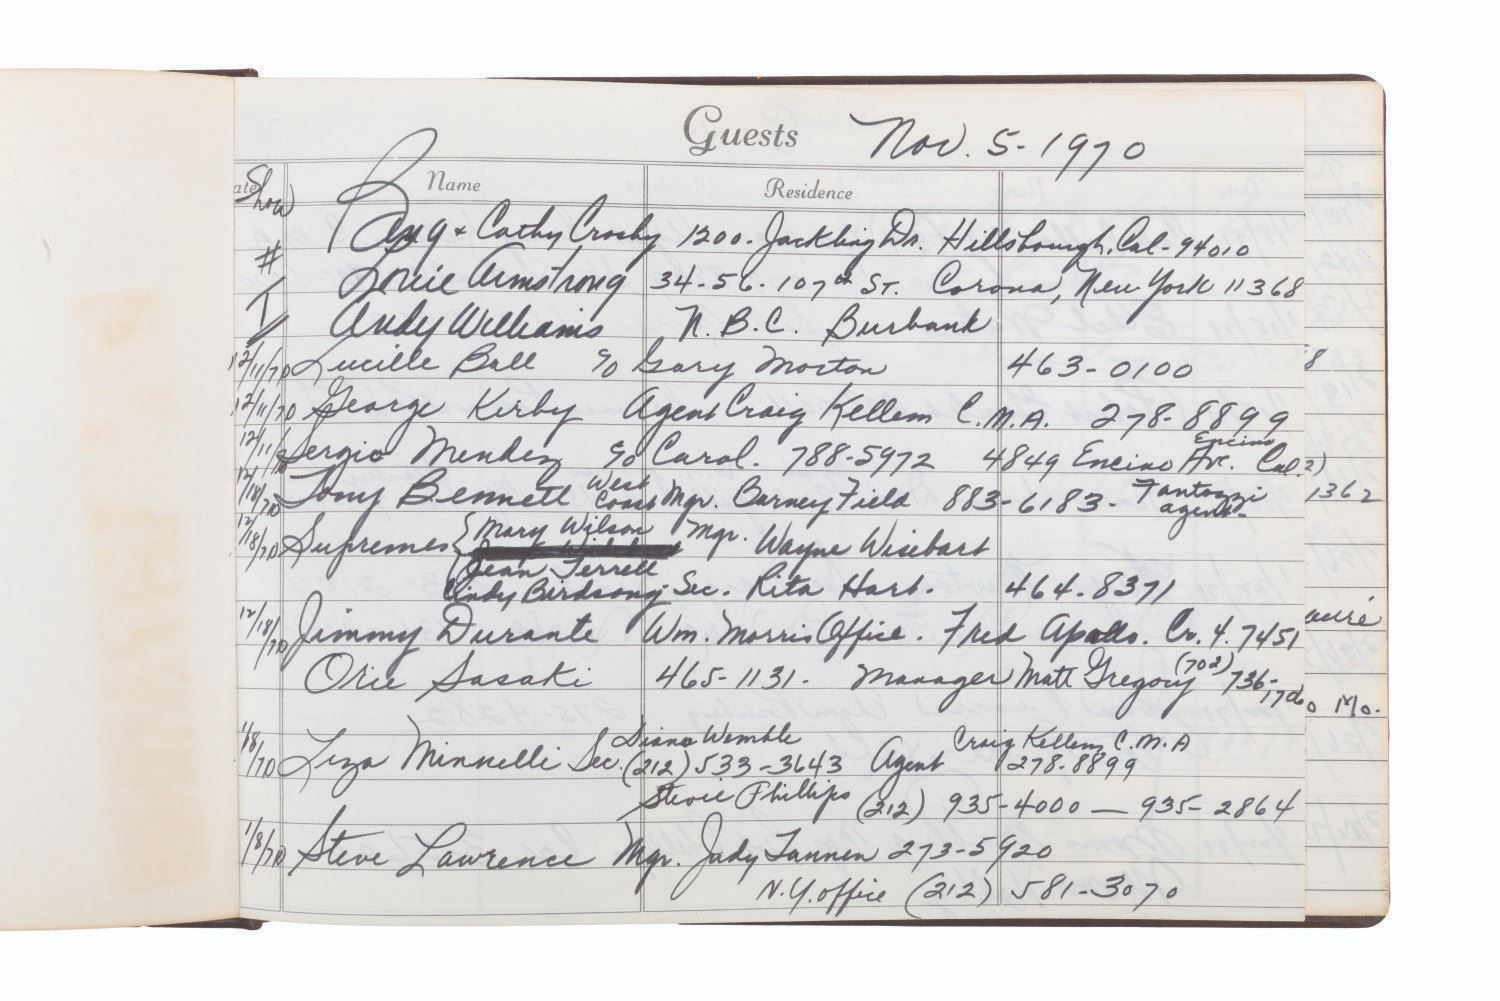 Guests Nov. 5-1970
Show Name Residence
Bing & Cathy Crosby 1200. Jackling Dr. Hillsborough, Cal-94010
# Louie Armstrong 34-56-107th St. Corona, New York 11368
1 Andy Williams N.B.C. Burbank
12/11/70 Lucille Ball c/o Gary Morton 463-0100
12/11/70 George Kirby Agent Craig Kellem C.M.A. 278-8899
Encino
12/11/70 Sergio Mendez c/o Carol. 788-5972 4849 Encino Ave. Cal.
12/18/70 Tony Bennett West Coast Mgr. Barney Field 883-6183- Fantozzi agent-
12/18/70 Supremes { Mary Wilson Mgr. Wayne Wisebart
Jean Terrell
Cindy Birdsong- Sec. Rita Harb. 464-8371
12/18/70 Jimmy Durante Wm. Morris Office. Fred Apollo. Cr. 4. 7451
Orie Sasaki 465-1131. Manager Matt Gregory (702) 736-
Diana Wemble Craig Kellem C.M.A
1/8/70 Liza Minnelli Sec. (212) 533-3643 Agent 278-8899
Stevie Phillips (212) 935-4000 — 935-2864
1/8/70 Steve Lawrence Mgr. Judy Tannen 273-5920
N.Y. office (212) 581-3070